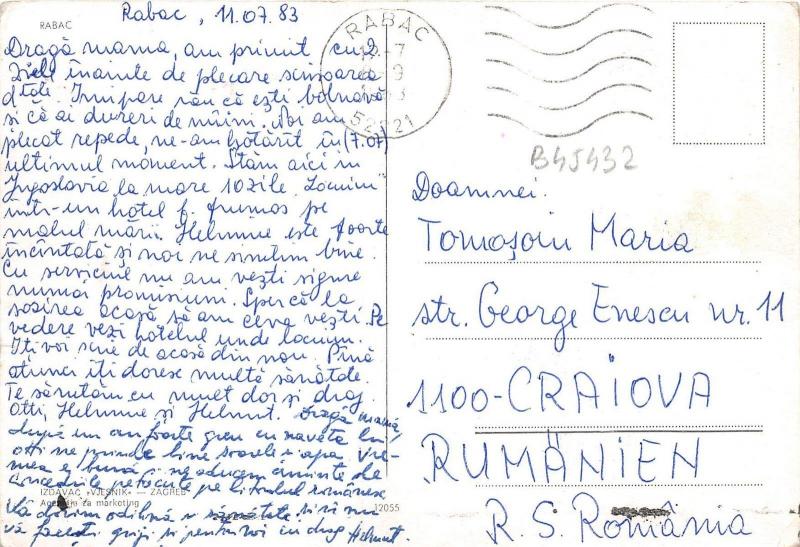 Rabac, 11.07.83
RABAC
Dragă mama, am primit cu 2
zile înainte de plecare scrisoarea
d-tale. Îmi pare rău că ești bolnavă
și că ai dureri de mîini. Noi am
plecat repede, ne-am hotărît în (7.07)
ultimul moment. Stăm aici in
Jugoslavia la mare 10 zile. Locuim
intr-un hotel f. frumos pe
malul mării. Helmine este foarte
încîntată și noi ne simțim bine.
Cu serviciul nu am vești sigure
numai promisiuni. Sper că la
sosirea acasă să am ceva vești. Pe
vedere vezi hotelul unde locuim.
Iți voi scrie de acasă din nou. Pînă
atunci iți doresc multă sănătate.
Te sărutăm cu mult dor și drag
Otti, Helmine și Helmut. Dragă mamă,
după un an foarte greu cu naveta lui
Otti ne prinde bine soarele și apa. Vre-
mea e bună și ne aducem aminte de
concediile petrecute pe litoralul românesc.
Vă dorim odihnă și sănătate și să nu
vă faceți griji și pentru voi cu drag Helmut.
IZDAVAČ »VJESNIK« — ZAGREB
Agencija za marketing
12055
RABAC
52221
B45432
Doamnei.
Tomoșoiu Maria
str. George Enescu nr. 11
1100-CRAIOVA
RUMÄNIEN
R. S. România